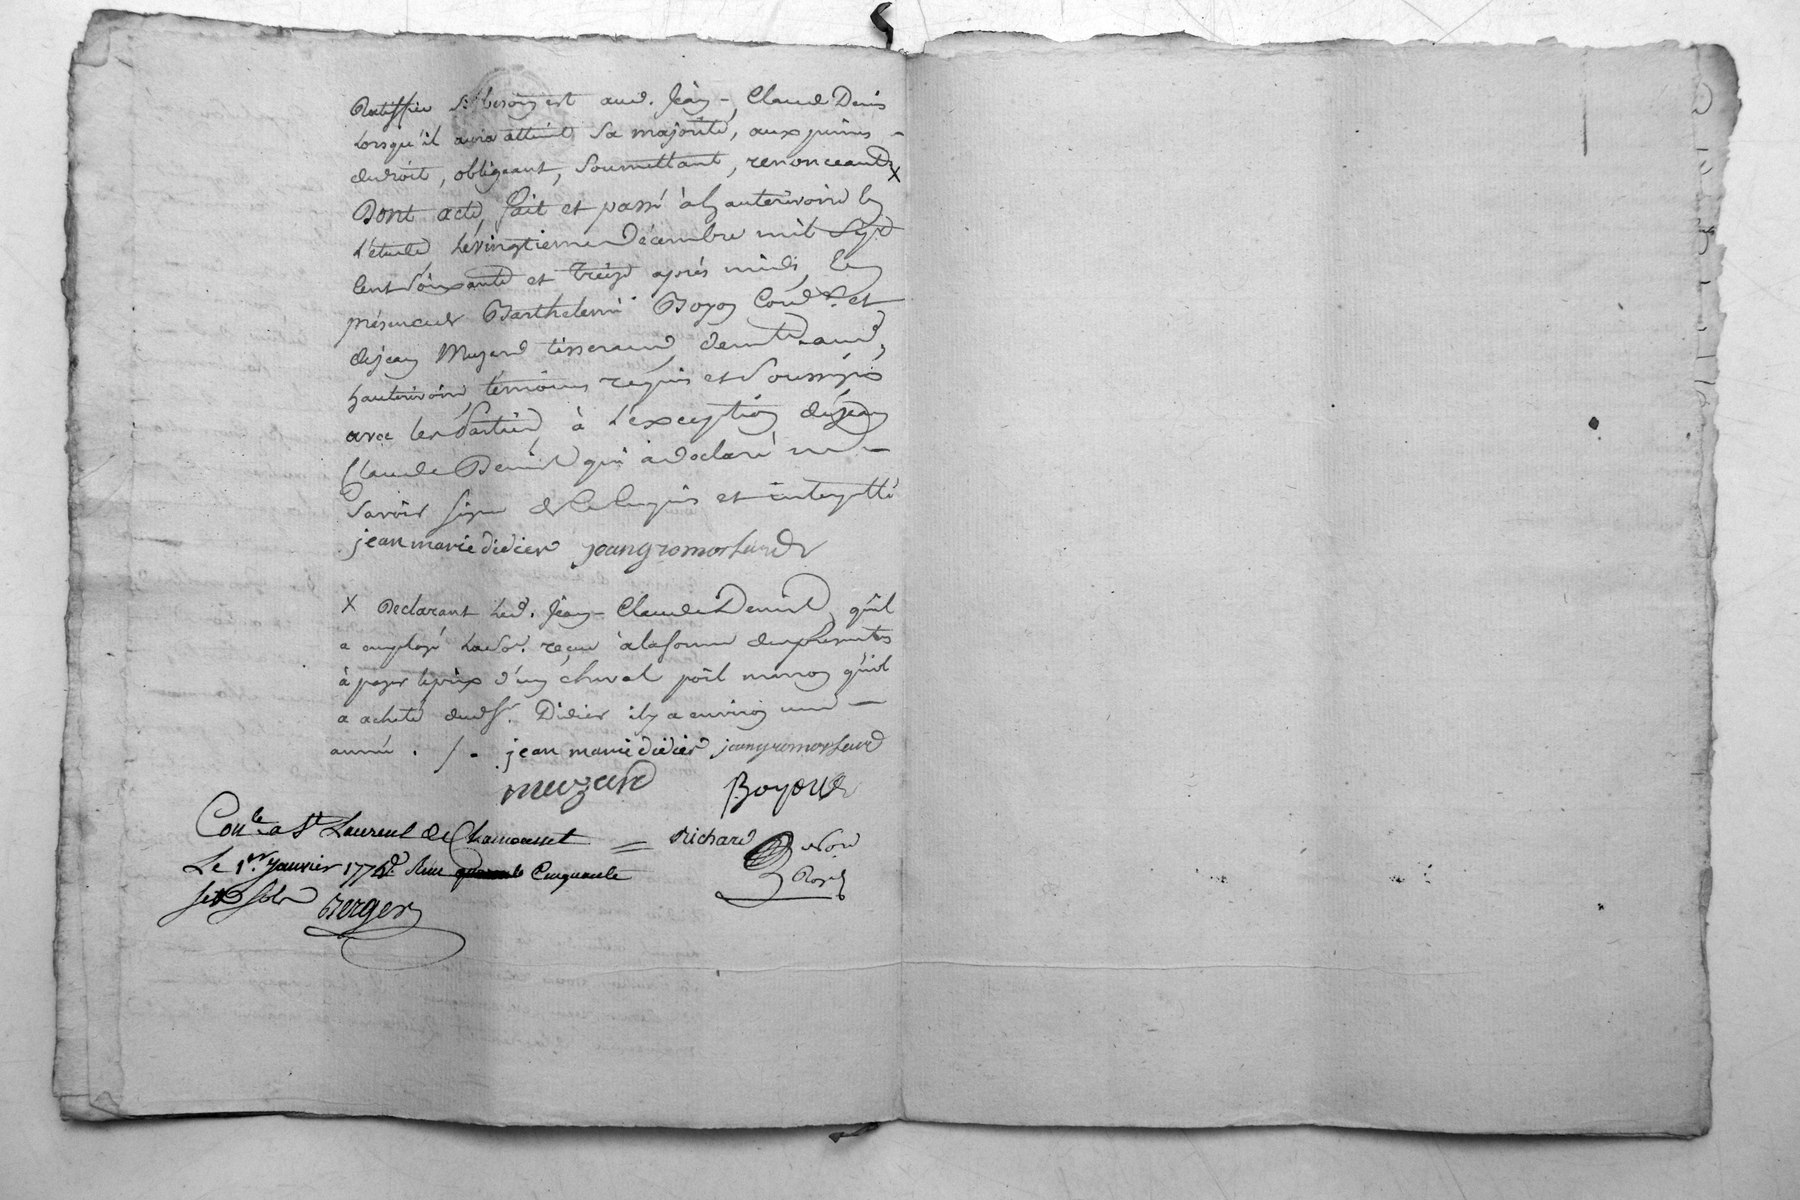 Ratiffier S'il besoing est aud. Jean-Claude Denis
Lorsqu'il aura atteint Sa majorité, aux peines -
dudroit, obligeant, Soumettant, renonceant X
Dont acte, fait et passé à hauterivoire En
L'étude Le vingtieme Décembre mil Sept
Cent Soixante et treize après midi, En
présence de Barthelemi Boyon Cord.r et
de jean Muzard tisserand, demt. aud.
hauterivoire, témoins requis et Soussignés
avec les Parties, à L'exception de jean
Claude Denis qui a declaré ne -
Savoir signer de Ce Enquis et interpellé
jean marie didier jean gromortard
X Declarant Led. Jean-Claude Denis qu'il
a employé La So. reçue à la forme des présentes
à payer le prix d'un cheval poil minon qu'il
a acheté dud. Sr. Didier il y a environ une -
année . /. jean marie didier jean gromortard
muzard Boyoud
Con.le a St Laurent de Chamousset = Richard Nore
Le 1.er Janvier 1774. Reçu Cinquante Roy.l
sept Sols Berger